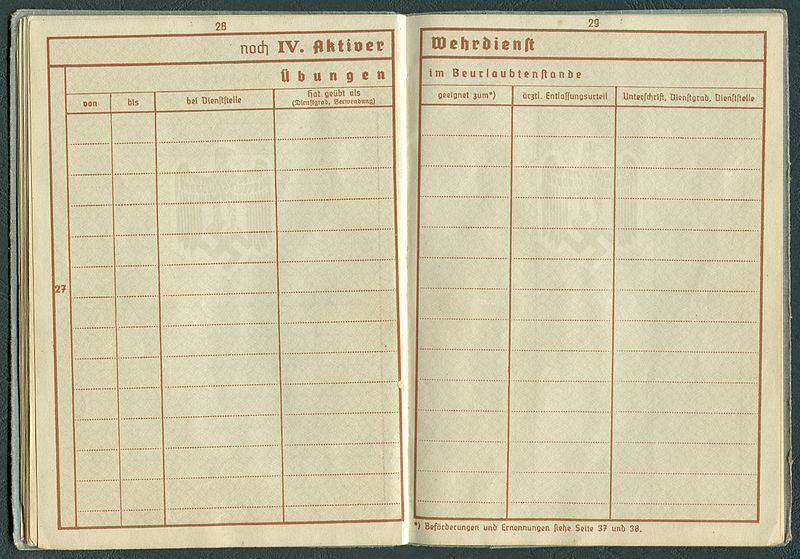 28
noch IV. Aktiver
Übungen
von
bis
bei Dienststelle
Hat geübt als
(Dienstgrad, Verwendung)
27
29
Wehrdienst
im Beurlaubtenstande
geeignet zum*)
ärztl. Entlassungsurteil
Unterschrift, Dienstgrad, Dienststelle
*) Beförderungen und Ernennungen siehe Seite 37 und 38.